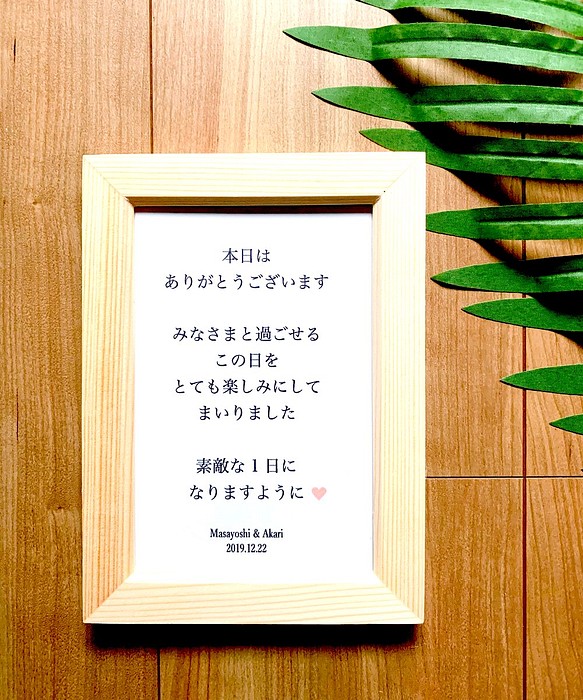 本日は
ありがとうございます
みなさまと過ごせる
この日を
とても楽しみにして
まいりました
素敵な1日に
なりますように
Masayoshi & Akari
2019.12.22